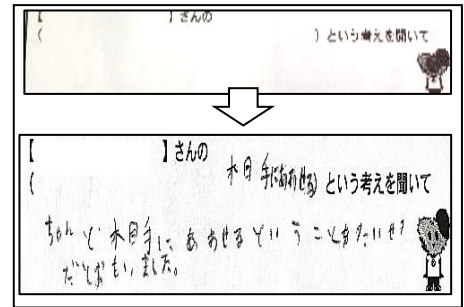 【　　　】さんの
(　　　) という考えを聞いて
【　　　】さんの
(　相手にあわせる) という考えを聞いて
ちゃんと相手に、あわせるということがたいせつ
だとおもいました。